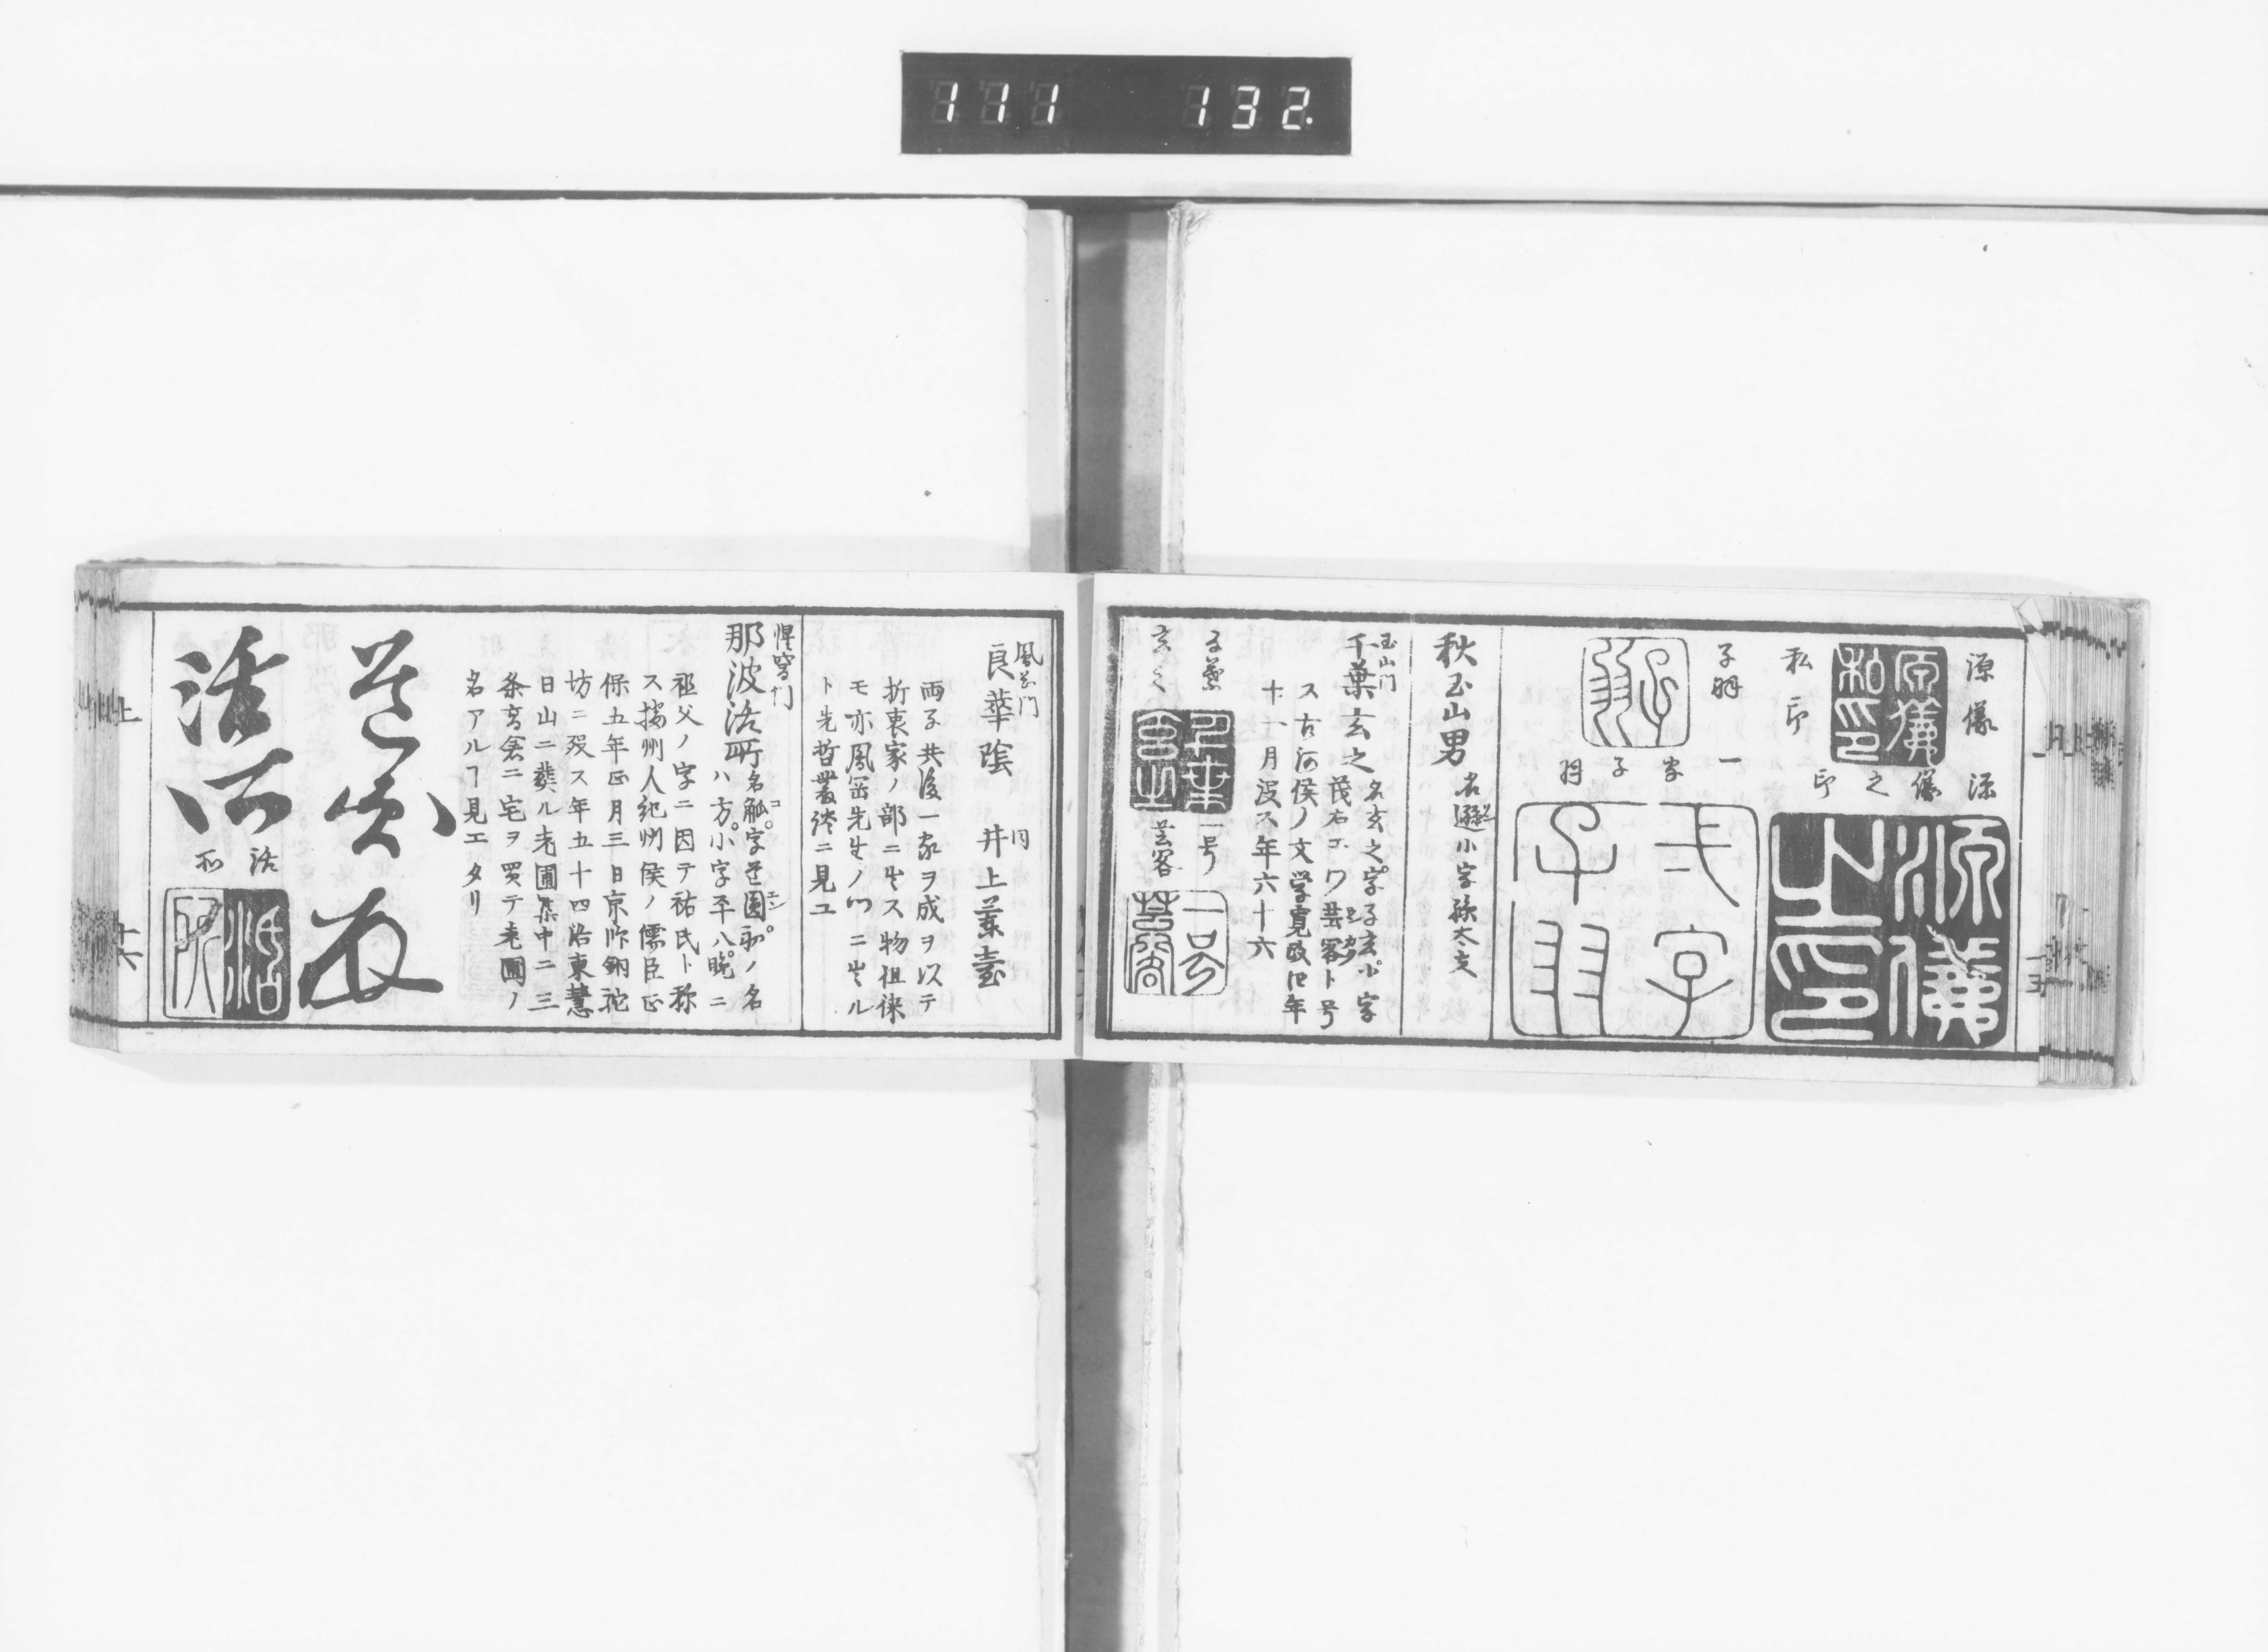 111 132.
源儀
私印
源儀之印
子羽
一字子羽
秋玉山男
名遜小字孫太交
玉山門
千葉玄之
名玄之字子玄小字
茂右ヱ門芸客ト号
ス古河侯ノ文学寛政四年
十一月没ス年六十六
千葉
玄之
一号
芸客
鳳岡門
良華陰
同
井上蘭臺
両子共後一家ヲ成ヲ以テ
折衷家ノ部ニ出ス物徂徠
モ亦鳳岡先生ノ門ニ出ル
ト先哲叢談ニ見ユ
惺窩門
那波活所
名觚字道圓初ノ名
ハ方小字平八晩ニ
祖父ノ字ニ因テ祐氏ト称
ス播州人紀州侯ノ儒臣正
保五年正月三日京師銅駝
坊ニ歿ス年五十四洛東慧
日山ニ葬ル老圃集中ニ三
条高倉ニ宅ヲ買テ老圃ノ
名アルヿ見エタリ
活所
活所
上
十六